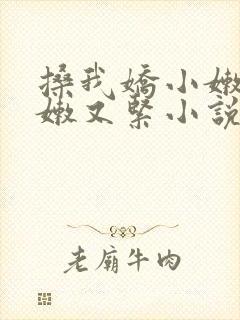 搡我嬌小嫩
嫩又緊小說
老廟牛肉